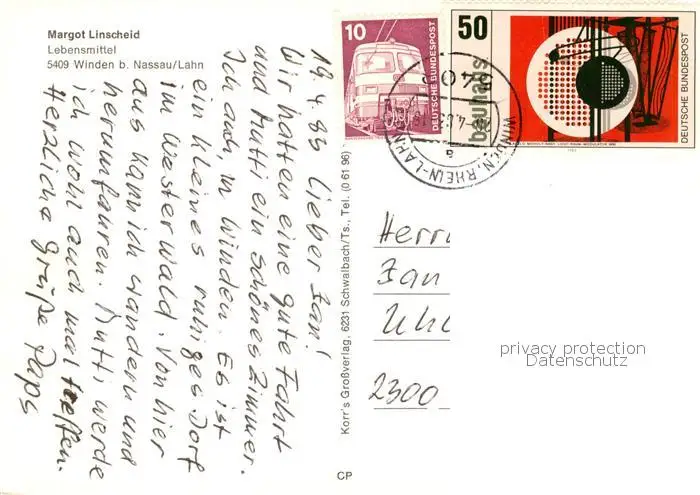 Margot Linscheid
Lebensmittel
5409 Winden b. Nassau/Lahn
19.4.83 Lieber Jan!
Wir hatten eine gute Fahrt
und Mutti ein schönes Zimmer.
Ich auch, in Winden. Es ist
ein kleines ruhiges Dorf
im Westerwald. Von hier
aus kann ich wandern und
herumfahren. Mutti werde
ich wohl auch mal treffen.
Herzliche Grüße Paps
Korr's Großverlag, 6231 Schwalbach/Ts., Tel. (0 61 96)
CP
10
DEUTSCHE BUNDESPOST
50
bauhaus
DEUTSCHE BUNDESPOST
WINDEN, RHEIN-LAHN
a
Herrn
Jan
2300
privacy protection
Datenschutz